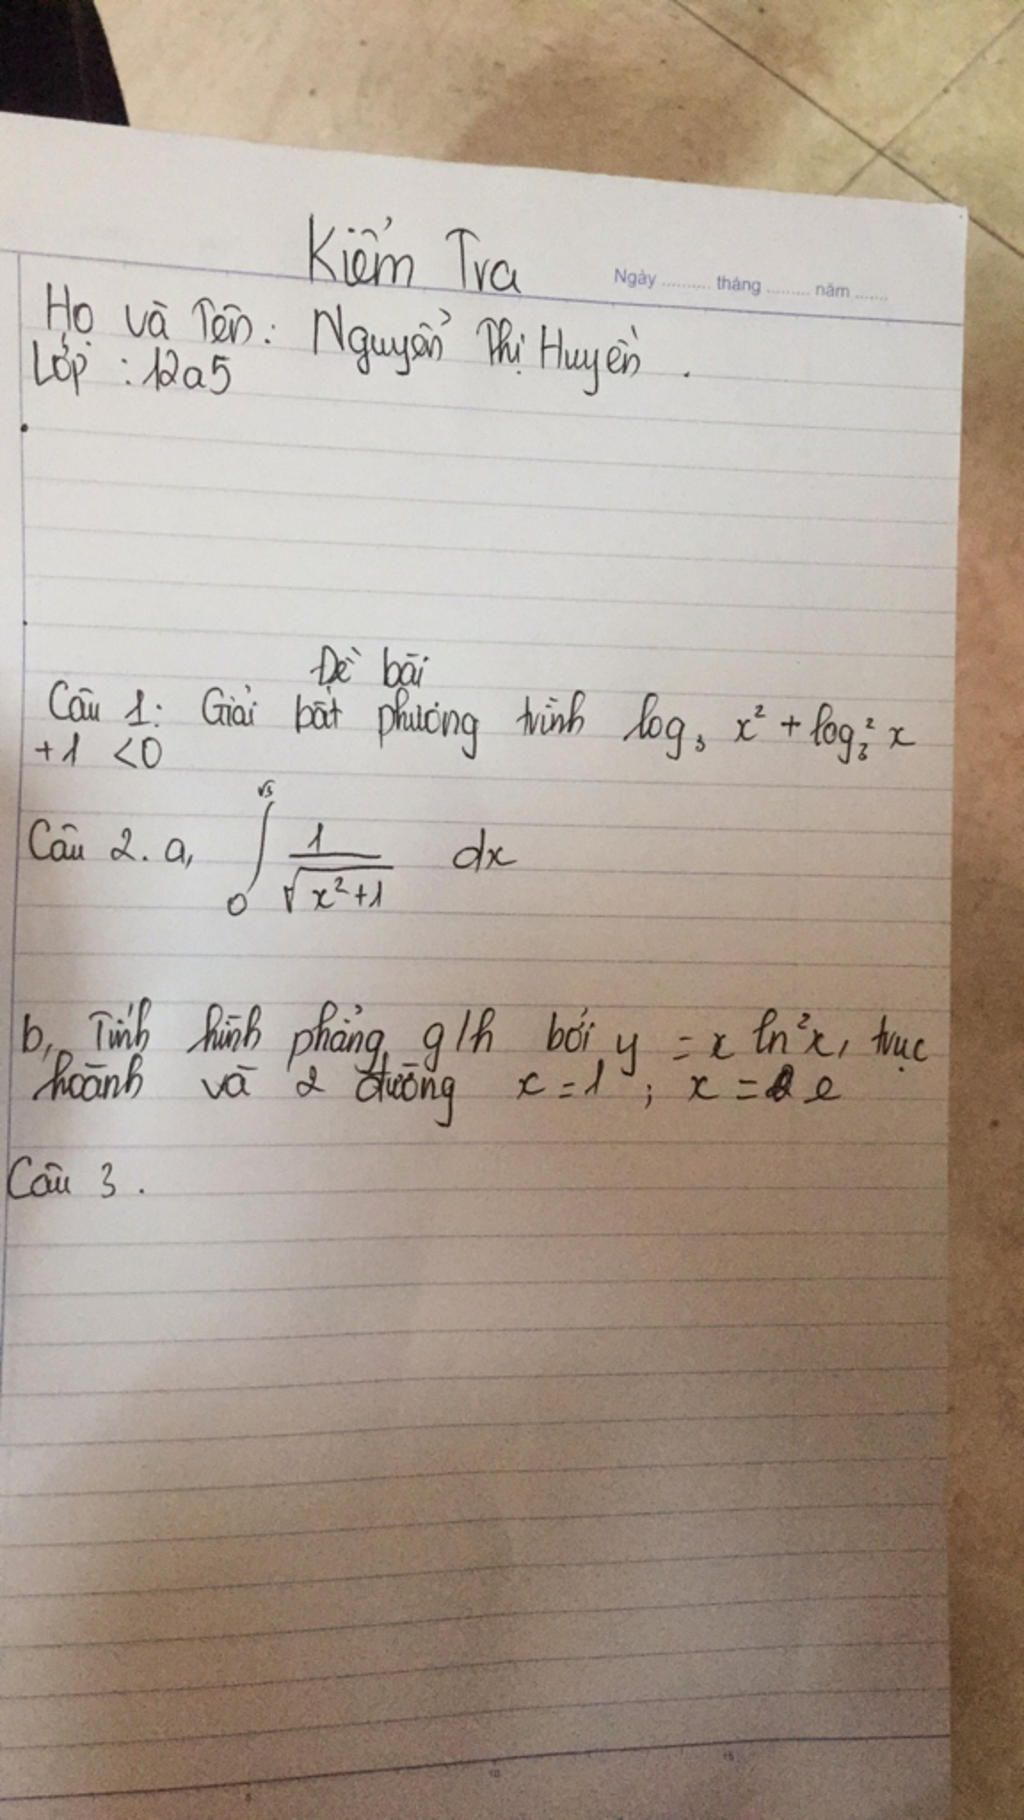 Kiểm Tra
Ngày .......... tháng ......... năm .......
Họ và Tên: Nguyễn Thị Huyền .
Lớp : 12a5
Đề bài
Câu 1: Giải bất phương trình log₃ x² + log₃² x
+1 <0
Câu 2. a, ∫₀^√3 1/√(x²+1) dx
b, Tính hình phẳng g/h bởi y = x ln²x, trục
hoành và 2 đường x = 1 ; x = e
Câu 3 .
5 10 15